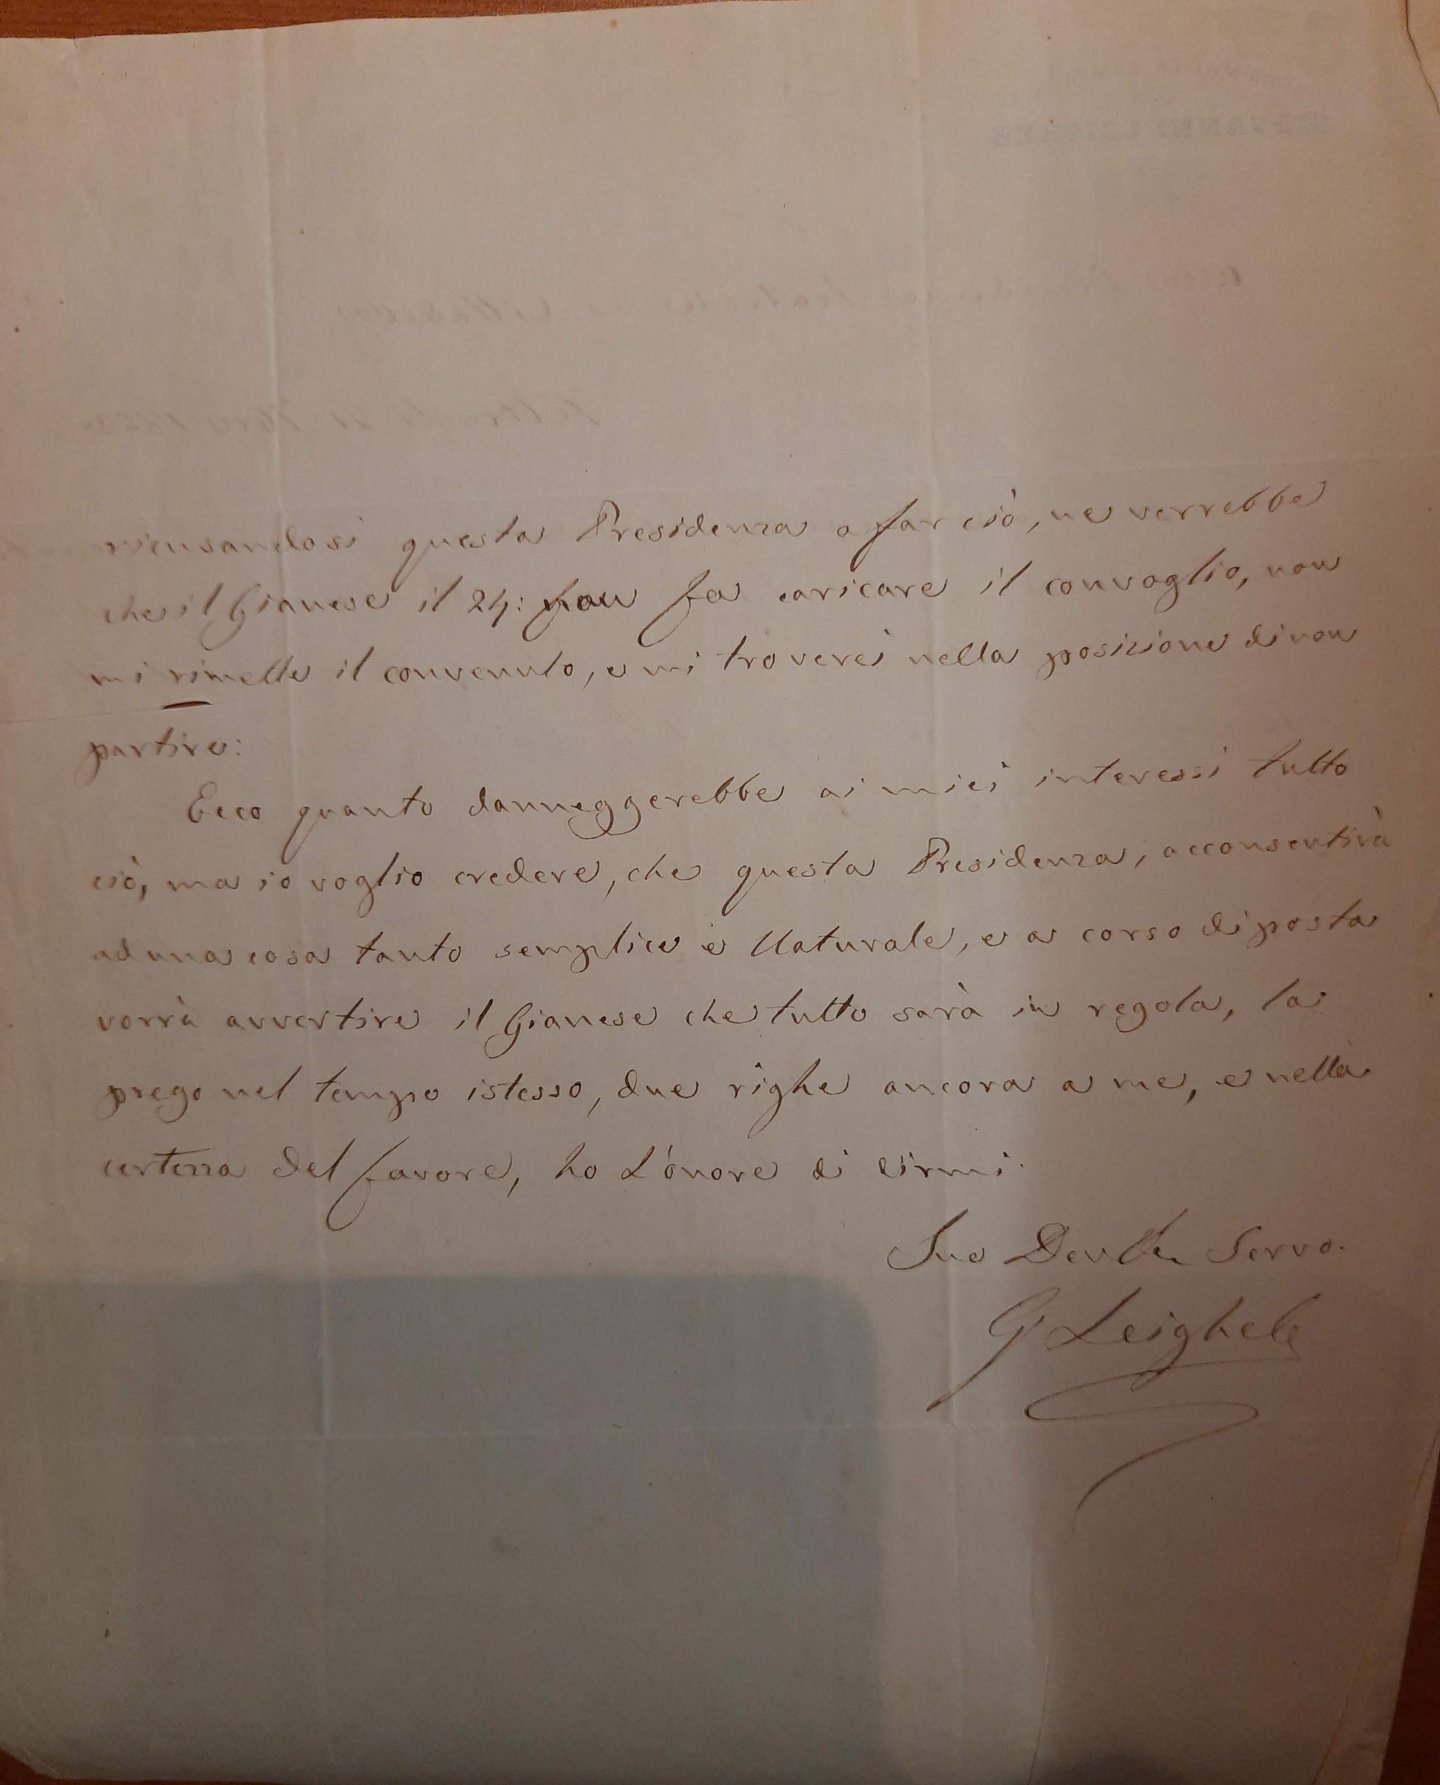 ricusandosi questa Presidenza a far ciò, ne verrebbe
che il Gianese il 24: non fa caricare il convoglio, non
mi rimette il convenuto, e mi troverei nella posizione di non
partire:
Ecco quanto danneggerebbe ai miei interessi tutto
ciò, ma io voglio credere, che questa Presidenza, acconsentirà
ad una cosa tanto semplice e Naturale, e a corso di posta
vorrà avvertire il Gianese che tutto sarà in regola, la
prego nel tempo istesso, due righe ancora a me, e nella
certezza del favore, ho L'onore di dirmi.
Suo Servo.
G Leigheb